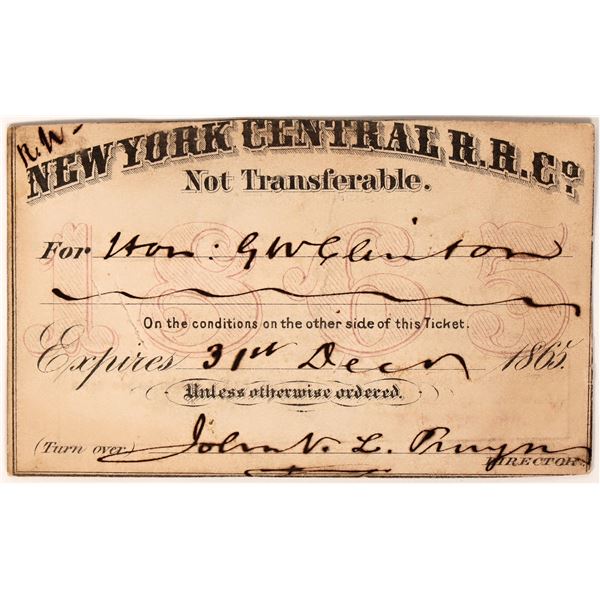 R.W-
NEW YORK CENTRAL R.R. Co.
Not Transferable.
1865
For Hon: G W Clinton
On the conditions on the other side of this Ticket.
Expires 31st Decr 1865.
Unless otherwise ordered.
(Turn over) John V. L. Pruyn
DIRECTOR.